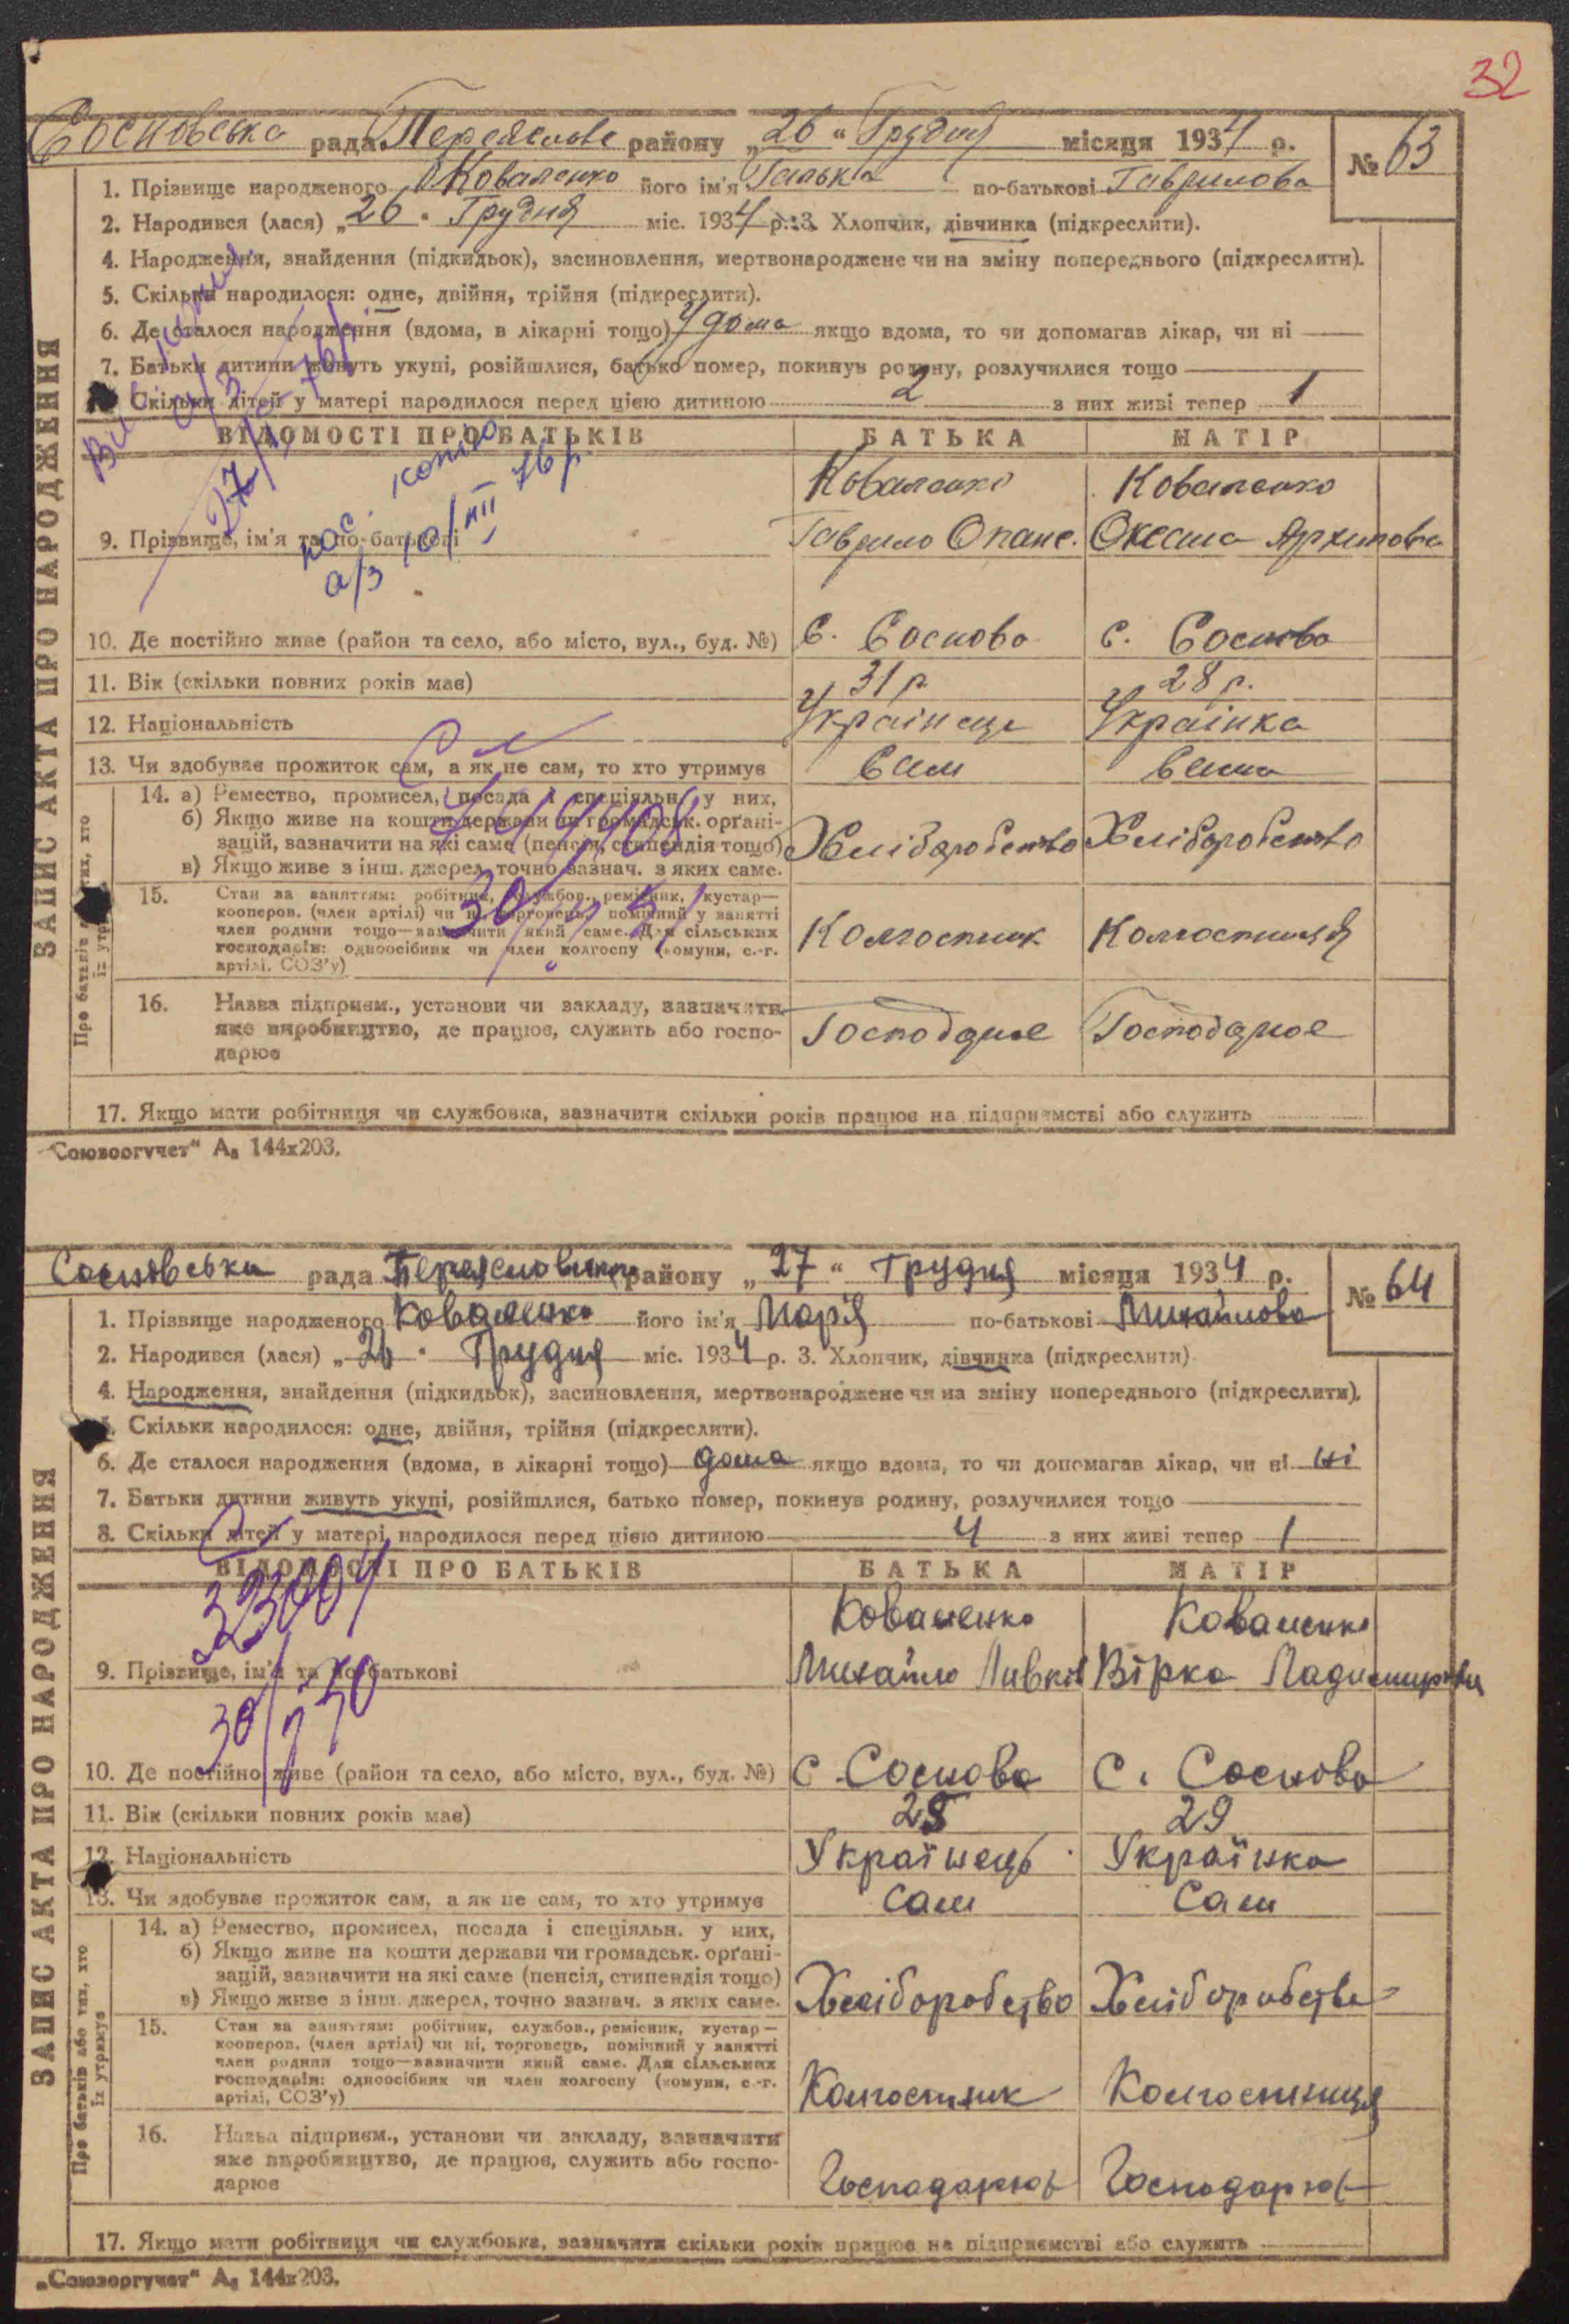 32
Сосновська рада Переяслове району „26“ Грудня місяця 1934 р.
№ 63
1. Прізвище народженого Коваленко його ім'я Галька по-батькові Гаврилова
2. Народився (лася) „26“ Грудня міс. 1934 р. 3. Хлопчик, дівчинка (підкреслити).
4. Народження, знайдення (підкидьок), засиновлення, мертвонароджене чи на зміну попереднього (підкреслити).
5. Скільки народилося: одне, двійня, трійня (підкреслити).
6. Де сталося народження (вдома, в лікарні тощо) у дома якщо вдома, то чи допомагав лікар, чи ні
7. Батьки дитини живуть укупі, розійшлися, батько помер, покинув родину, розлучилися тощо
Скільки дітей у матері народилося перед цією дитиною 2 з них живі тепер 1
ВІДОМОСТІ ПРО БАТЬКІВ БАТЬКА МАТІР
Коваленко Коваленко
9. Прізвище, ім'я та по-батькові Гаврило Опанс. Оксана Архипова
копію
а/з 10/XII 76 р.
10. Де постійно живе (район та село, або місто, вул., буд. №) С. Соснова с. Соснова
11. Вік (скільки повних років має) 31 р. 28 р.
12. Національність Українець Українка
13. Чи здобуває прожиток сам, а як не сам, то хто утримує Сам Сама
14. а) Ремество, промисел, посада і спеціяльн. у них,
б) Якщо живе на кошти держави чи громадськ. орґані-
зацій, зазначити на які саме (пенсія, стипендія тощо) Хліборобство Хліборобство
в) Якщо живе з інш. джерел, точно зазнач. з яких саме.
15. Стан за заняттям: робітник, службов., ремісник, кустар—
кооперов. (член артілі) чи ні, торговець, помічний у занятті
член родини тощо—зазначити який саме. Для сільських Колгоспник Колгоспниця
господарів: одноосібник чи член колгоспу (комуни, с.-г.
артілі, СОЗ'у)
16. Назва підприєм., установи чи закладу, зазначити
яке виробництво, де працює, служить або госпо-
дарює
17. Якщо мати робітниця чи службовка, зазначити скільки років працює на підприємстві або служить
ЗАПИС АКТА ПРО НАРОДЖЕННЯ
„Союзоргучет“ А₅ 144х203.
Сосновська рада Переяславськ району „27“ Грудня місяця 1934 р.
№ 64
1. Прізвище народженого Коваленко його ім'я Марія по-батькові Михайлова
2. Народився (лася) „26“ Грудня міс. 1934 р. 3. Хлопчик, дівчинка (підкреслити).
4. Народження, знайдення (підкидьок), засиновлення, мертвонароджене чи на зміну попереднього (підкреслити).
Скільки народилося: одне, двійня, трійня (підкреслити).
6. Де сталося народження (вдома, в лікарні тощо) дома якщо вдома, то чи допомагав лікар, чи ні ні
7. Батьки дитини живуть укупі, розійшлися, батько помер, покинув родину, розлучилися тощо
8. Скільки дітей у матері народилося перед цією дитиною 4 з них живі тепер 1
ВІДОМОСТІ ПРО БАТЬКІВ БАТЬКА МАТІР
Коваленко Коваленко
9. Прізвище, ім'я та по-батькові Михайло Вірка
10. Де постійно живе (район та село, або місто, вул., буд. №) с Соснова с. Соснова
11. Вік (скільки повних років має) 29
12. Національність Українець Українка
13. Чи здобуває прожиток сам, а як не сам, то хто утримує Сам Сам
14. а) Ремество, промисел, посада і спеціяльн. у них,
б) Якщо живе на кошти держави чи громадськ. орґані-
зацій, зазначити на які саме (пенсія, стипендія тощо)
в) Якщо живе з інш. джерел, точно зазнач. з яких саме. Хліборобство Хліборобство
15. Стан за заняттям: робітник, службов., ремісник, кустар—
кооперов. (член артілі) чи ні, торговець, помічний у занятті
член родини тощо—зазначити який саме. Для сільських
господарів: одноосібник чи член колгоспу (комуни, с.-г. Колгоспник Колгоспниця
артілі, СОЗ'у)
16. Назва підприєм., установи чи закладу, зазначити
яке виробництво, де працює, служить або госпо-
дарює Господарює Господарює
17. Якщо мати робітниця чи службовка, зазначити скільки років працює на підприємстві або служить
ЗАПИС АКТА ПРО НАРОДЖЕННЯ
Про батьків або тих, хто їх утримує
„Союзоргучет“ А₅ 144х203.